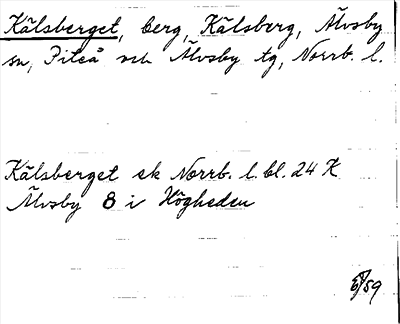 Kälsberget, berg, Kälsberg, Älvsby
sn, Piteå och Älvsby tg, Norrb. l.
Kälsberget ek Norrb. l. bl. 24 K
Älvsby 8 i Högheden
/59